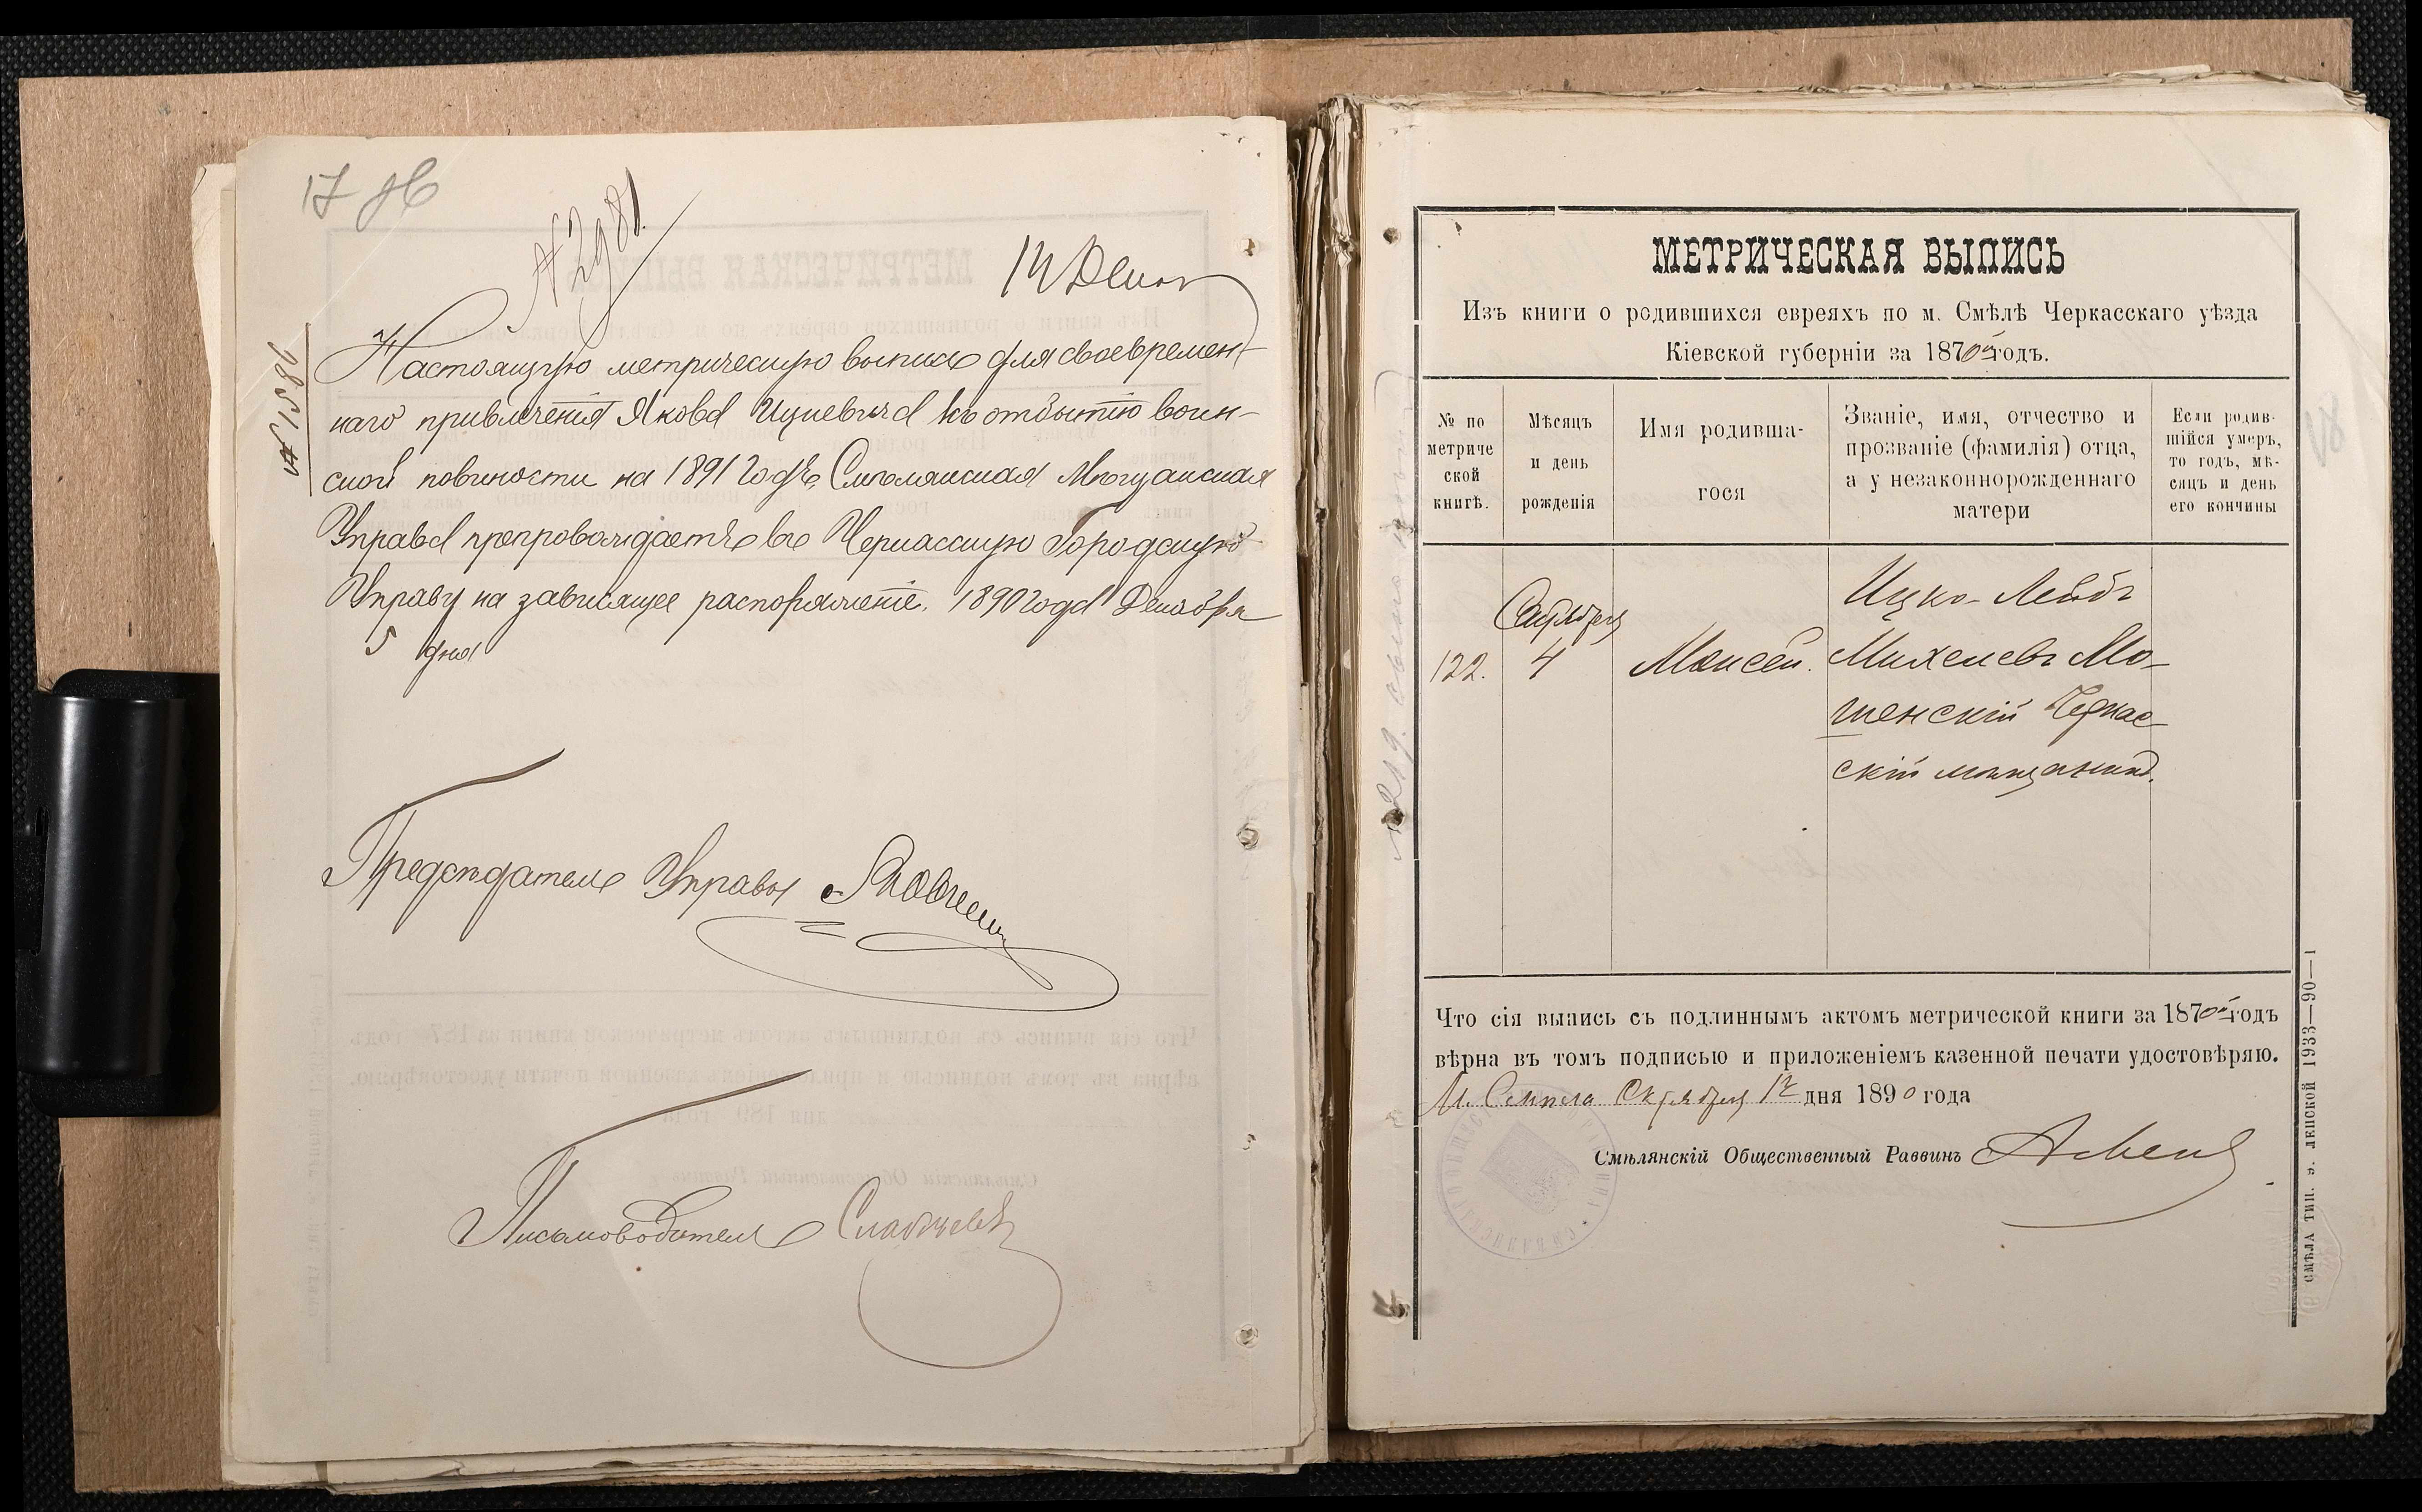 17
№ 2981.
14 Декаб
№ 1586
Настоящую метрическую выпись для своевремен-
наго привлеченія Якова Ицкевича къ отбытію воин-
ской повинности на 1891 годъ, Смѣлянская Мѣщанская
Управа препровождаетъ въ Черкасскую Городскую
Управу на зависящее распоряженіе. 1890 года Декабря
5 дня
Предсѣдатель Управы
Письмоводитель
МЕТРИЧЕСКАЯ ВЫПИСЬ
Изъ книги о родившихся евреяхъ по м. Смѣлѣ Черкасскаго уѣзда
Кіевской губерніи за 1870й годъ.
№ по метриче ской книгѣ.
Мѣсяцъ и день рожденія
Имя родивша- гося
Званіе, имя, отчество и прозваніе (фамилія) отца, а у незаконнорожденнаго матери
Если родив- шійся умеръ, то годъ, мѣ- сяцъ и день его кончины
Ицко-Лейбъ
122. 4 Моисей. Михелевъ Мо-
шенскій Черкас-
скій мѣщанинъ.
Что сія выпись съ подлиннымъ актомъ метрической книги за 1870й годъ
вѣрна въ томъ подписью и приложеніемъ казенной печати удостовѣряю.
М. Смѣла Октября 12 дня 1890 года
Смѣлянскій Общественный Раввинъ
СМѢЛА ТИП. Э. ЛЕПСКОЙ 1933—90—1